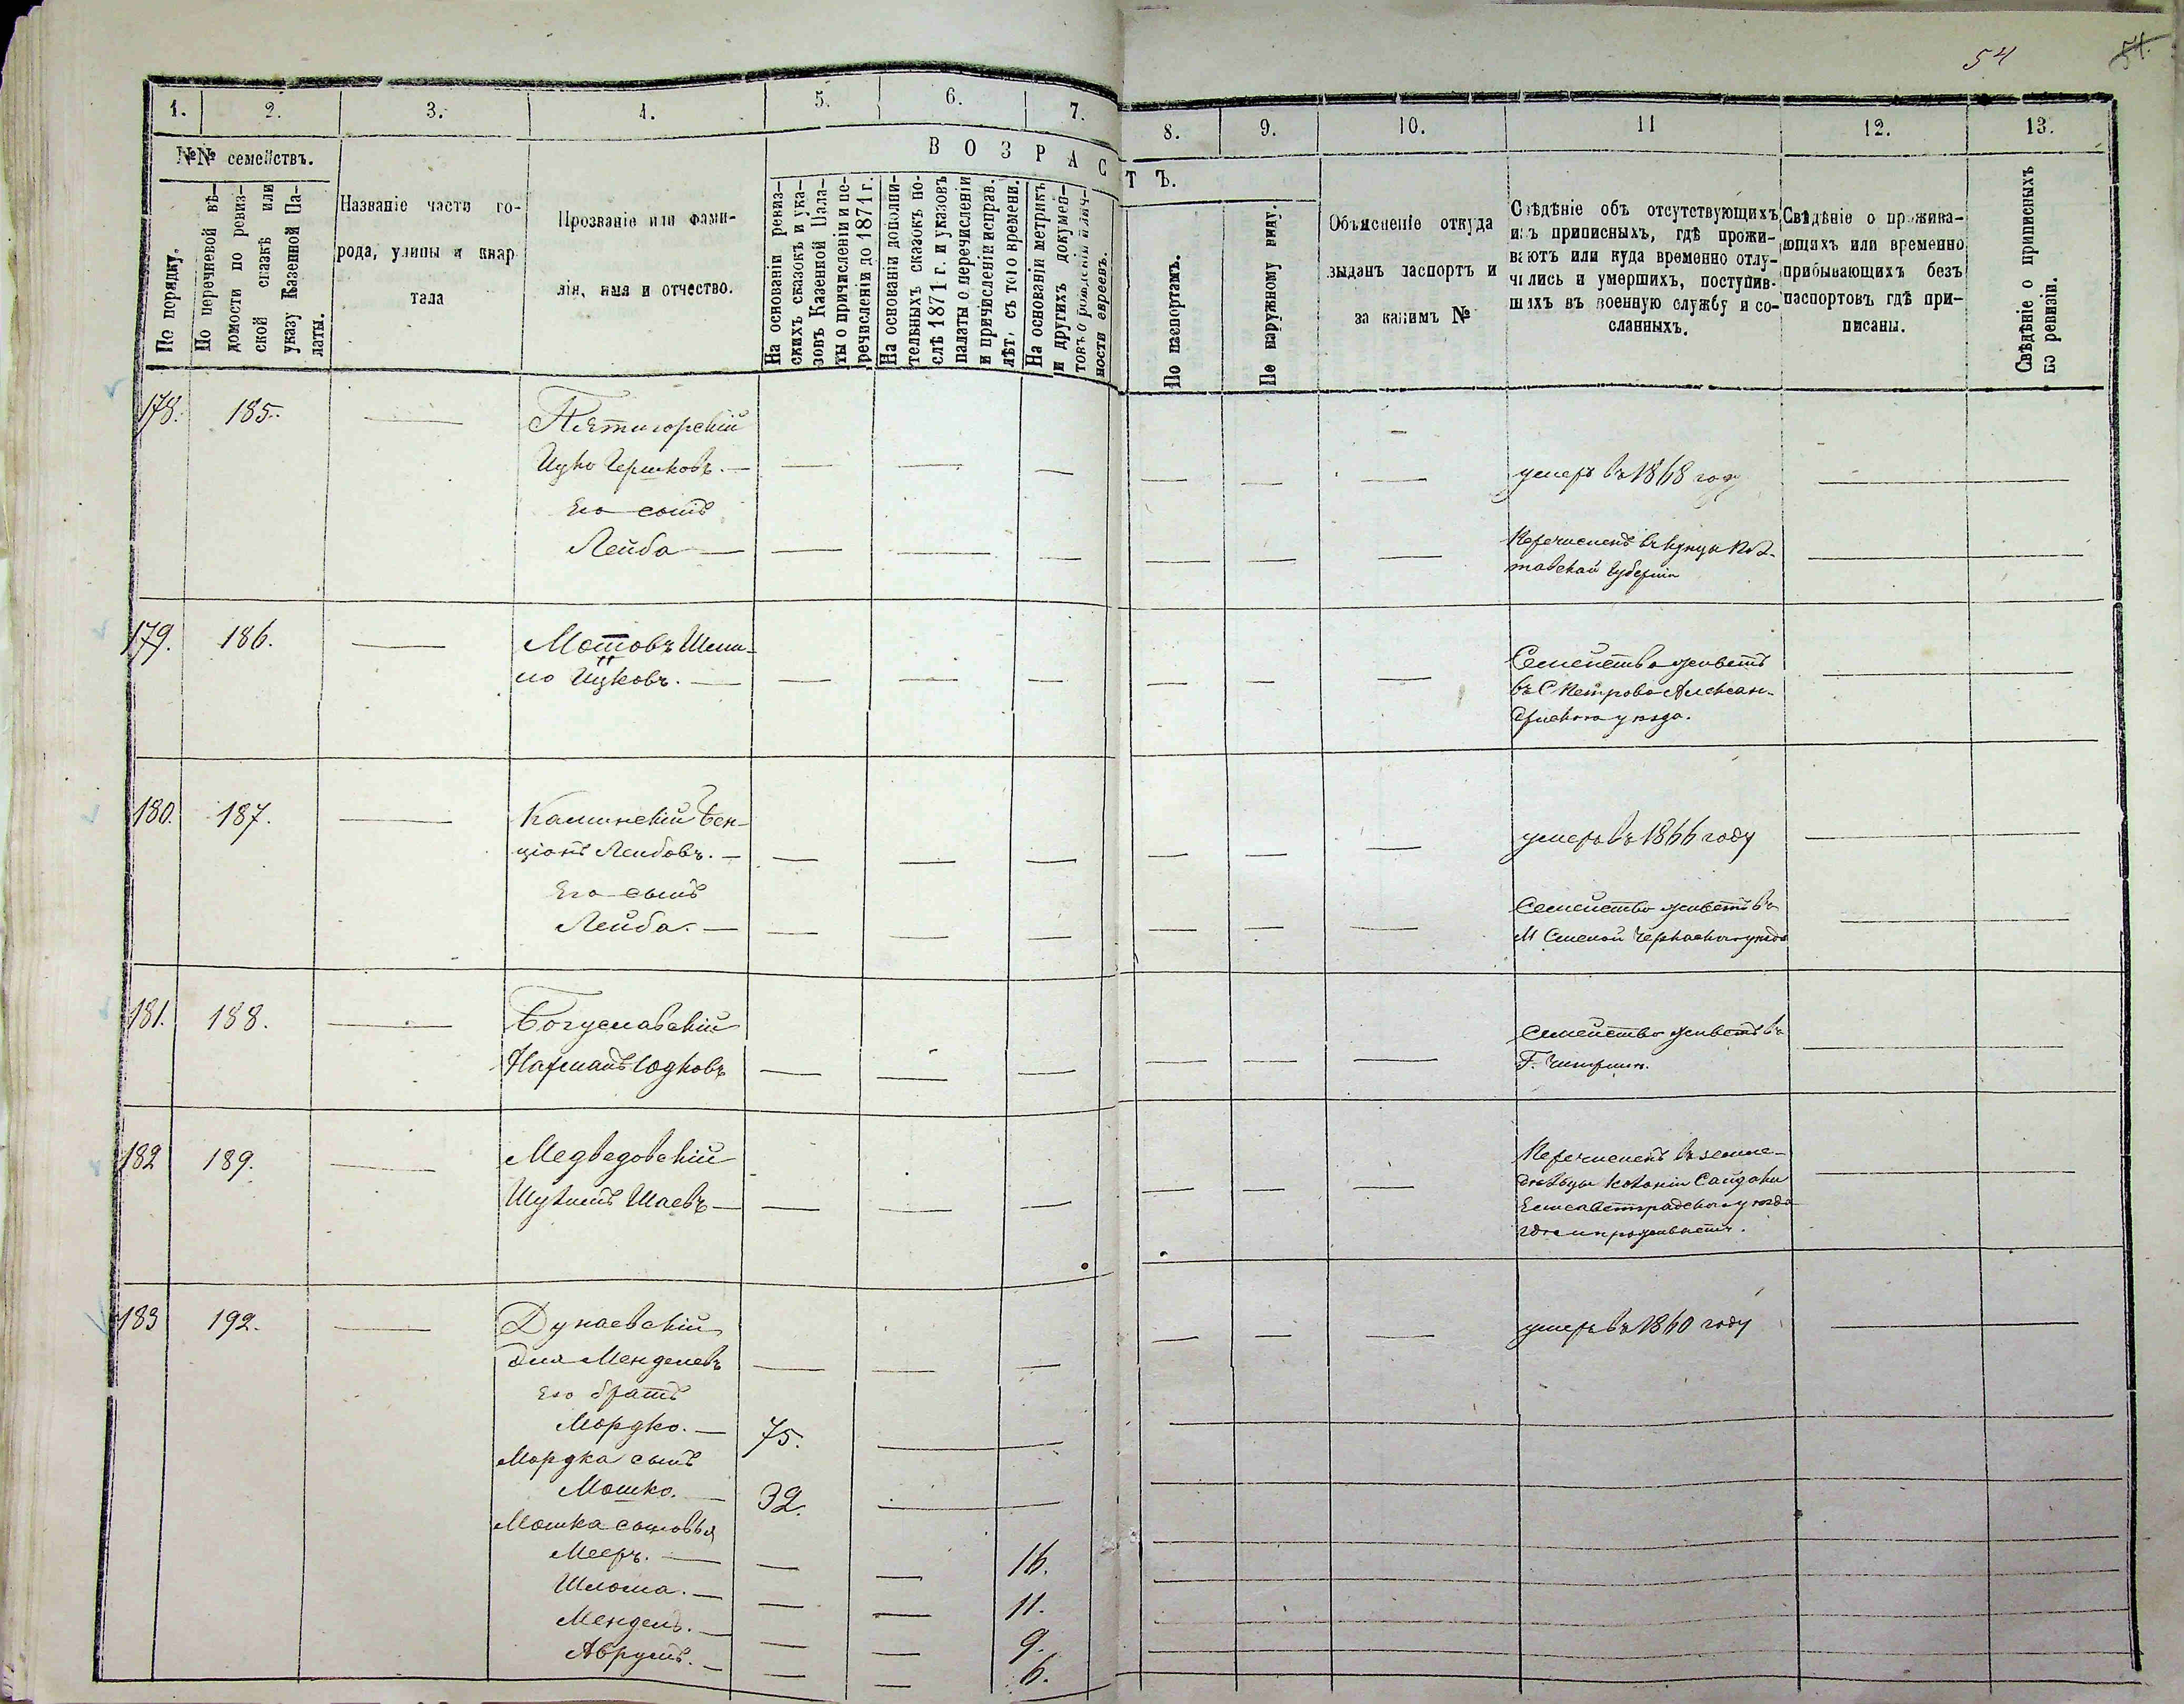 54
54.
1. 2. 3. 4. 5. 6. 7. 8. 9. 10. 11 12. 13.
№№ семействъ.
В О З Р А С Т Ъ.
По порядку.
По перечневой вѣ-
домости по ревиз-
ской сказкѣ или
указу Казенной Па-
латы.
Названіе части го-
рода, улицы и квар
тала
Прозваніе или фами-
лія, имя и отчество.
На основаніи ревиз-
скихъ сказокъ и ука-
зовъ Казенной Пала-
ты о причисленіи и пе-
речисленіи до 1871 г.
На основаніи дополни-
тельныхъ сказокъ по-
слѣ 1871 г. и указовъ
палаты о перечисленіи
и причисленіи исправ.
лѣт. съ того времени.
На основаніи метрикъ
и другихъ докумен-
товъ о рожденіи и лич-
ности евреевъ.
По паспортамъ.
По наружному виду.
Объясненіе откуда
выданъ паспортъ и
за какимъ №
Свѣдѣніе объ отсутствующихъ
изъ приписныхъ, гдѣ прожи-
ваютъ или куда временно отлу-
чились и умершихъ, поступив-
шихъ въ военную службу и со-
сланныхъ.
Свѣдѣніе о прожива-
ющихъ или временно
прибывающихъ безъ
паспортовъ гдѣ при-
писаны.
Свѣдѣніе о приписныхъ
по ревизіи.
178. 185. — Пятигорскій
Ицко Гершковъ. — умеръ въ 1868 году
Его сынъ
Лейба — Перечисленъ въ купцы Пол-
тавской Губерніи
179. 186. — Мотовъ Шли-
мо Ицковъ. — Семейство живетъ
въ С Петрово Алексан-
дрійскаго уѣзда.
180. 187. — Каминскій Бен-
ціонъ Лейбовъ. — умеръ въ 1866 году
Его сынъ
Лейба. — Семейство живетъ въ
М Смелой Черкаскаго уѣзда
181. 188. — Богуславскій
Нахманъ Юдковъ — Семейство живетъ въ
Г. Чигирин.
182 189. — Медведовскій
Шулимъ Шаевъ — Перечисленъ въ земле-
дѣльцы Колоніи Сайдаки
Елисаветградскаго уѣзда
гдѣ и проживаетъ.
183 192. — Дунаевскій
Эля Менделевъ — умеръ въ 1860 году
Его братъ
Мордко. — 75.
Мордка сынъ
Мошко. — 32.
Мошка сыновья
Мееръ. — 16.
Шлома. — 11.
Мендель. — 9.
Аврумъ. — 6.